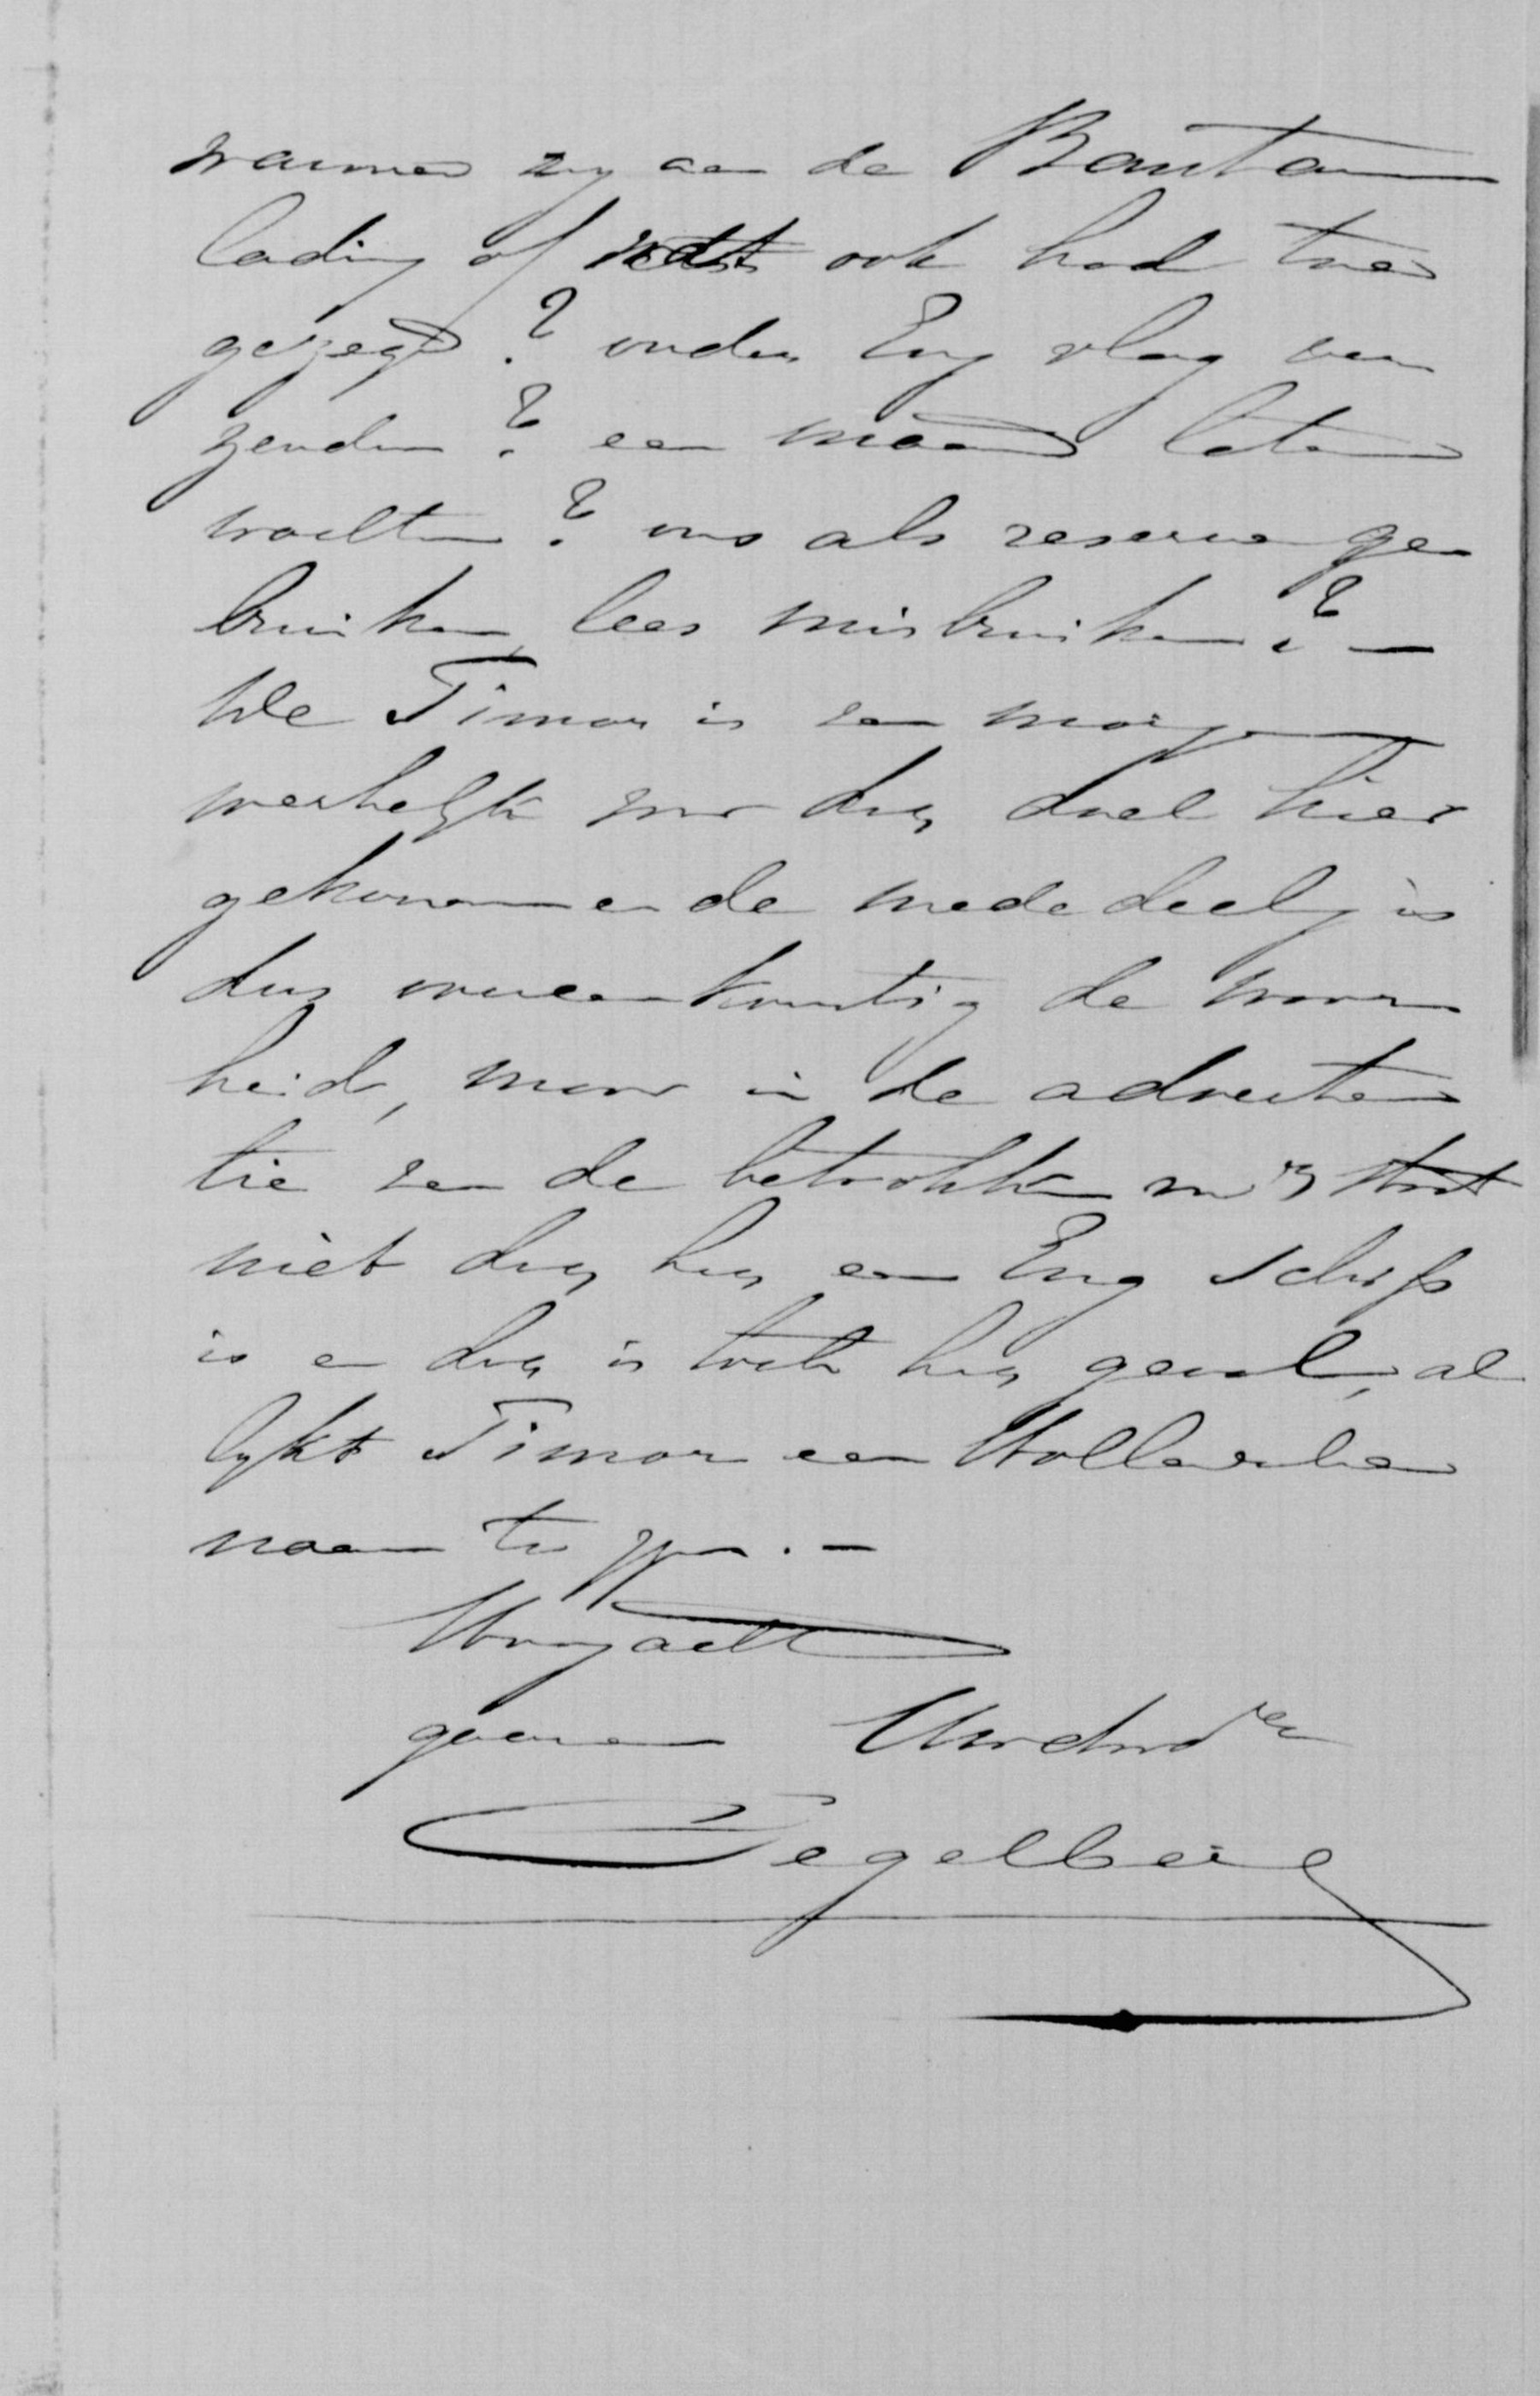 wanneer zy aan de Bantam
lading of wat ook had toe
gezegd? onder Eng vlag ver
zenden? een maand laten
wachten? ons als reserve ge
bruiken, lees misbruiken? —
De Timor is van morgen
werkelyk voor dat doel hier
gekomen en de mededeelg is
dus overeenkomstig de waar
heid, maar in de adverten
tie van de betrokken staat
niet dat het een Eng schip
is en dat is toch het geval, al
lykt Timor een Hollandsche
naam te zyn. —
Hoogacht
gaarne UwEdDw
Tegelberg